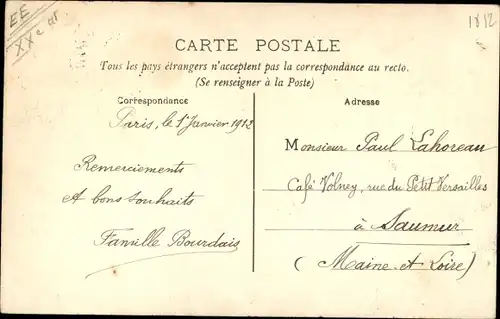 EE
XXe ar
1812
CARTE POSTALE
Tous les pays étrangers n'acceptent pas la correspondance au recto.
(Se renseigner à la Poste)
Correspondance
Adresse
Paris, le 1er Janvier 1912
Remerciements
et bons souhaits
Famille Bourdais
Monsieur Paul Lahoreau
Café Volney, rue du Petit Versailles
à Saumur
(Maine et Loire)